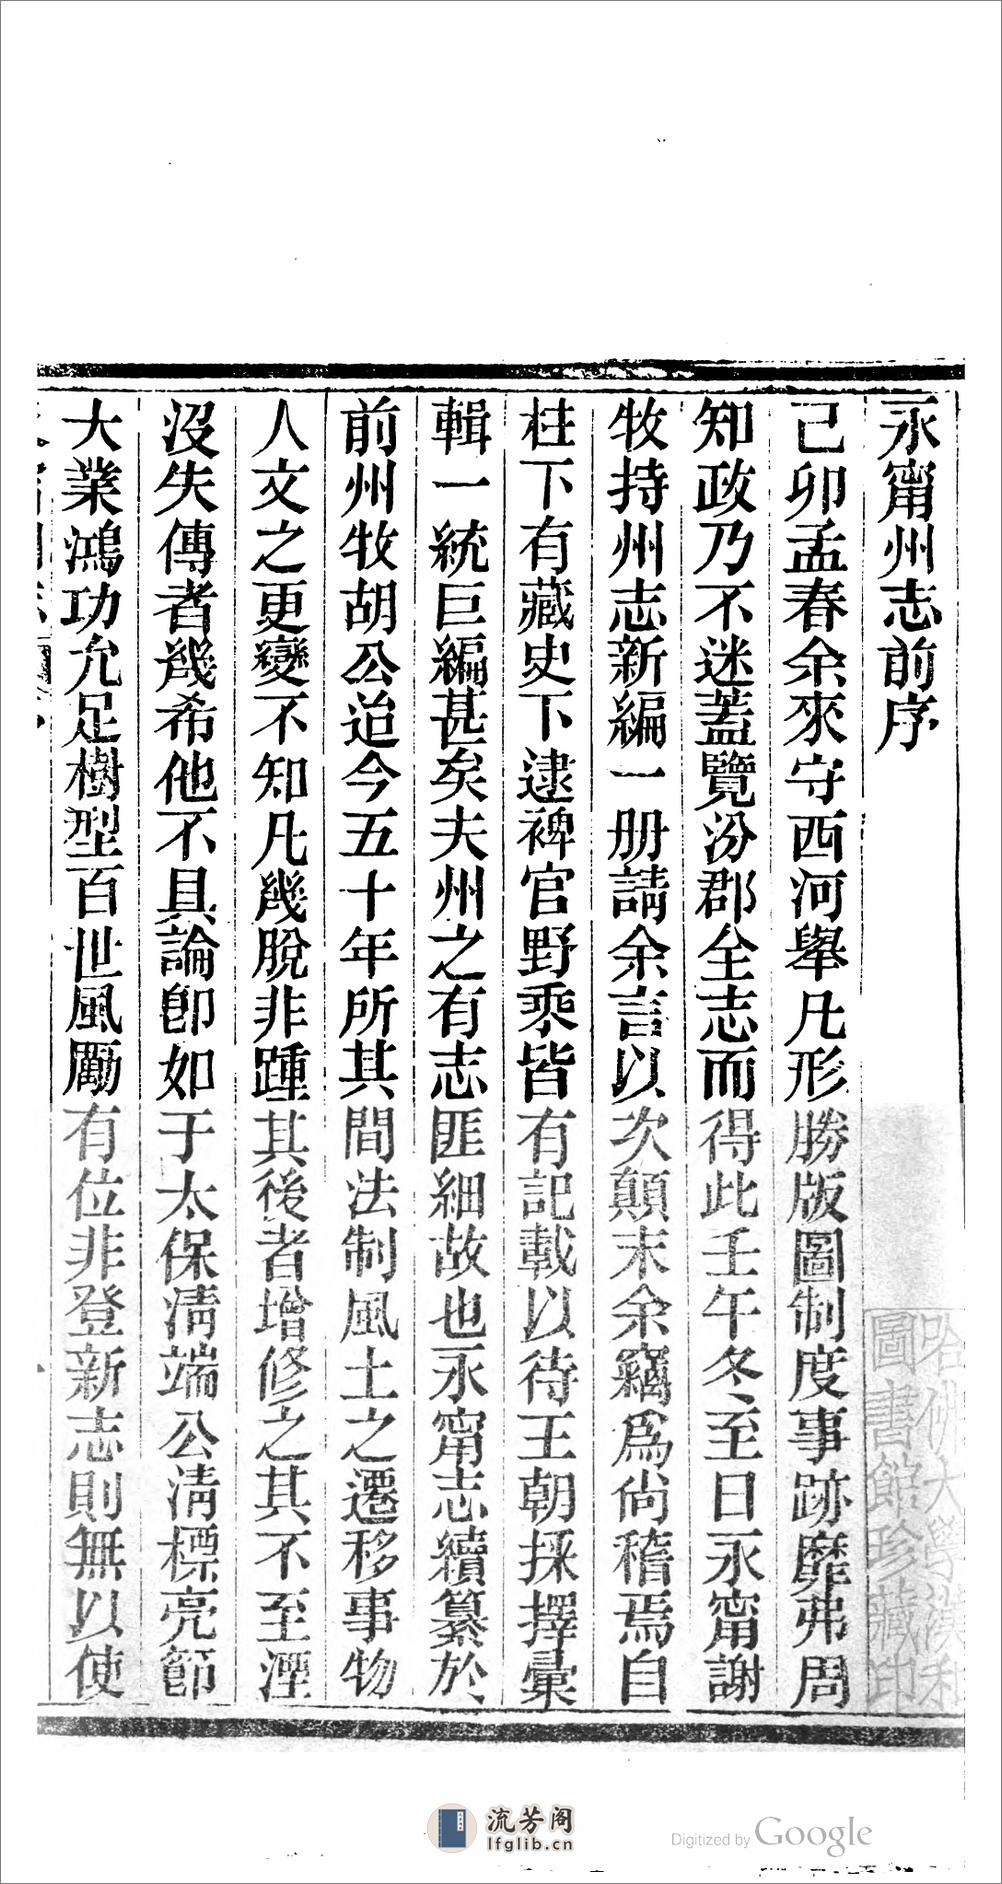 永甯州志前序
己卯孟春余來守西河舉凡形勝版圖制度事跡靡弗周
知政乃不迷蓋覽汾郡全志而得此壬午冬至日永甯謝
牧持州志新編一册請余言以次顛末余竊爲尙稽焉自
柱下有藏史下逮稗官野乘皆有記載以待王朝採擇彙
輯一統巨編甚矣夫州之有志匪細故也永甯志續纂於
前州牧胡公迨今五十年所其間法制風土之遷移事物
人文之更變不知凡幾脫非踵其後者增修之其不至湮
沒失傳者幾希他不具論卽如于太保淸端公淸標亮節
大業鴻功允足樹型百世風勵有位非登新志則無以使
哈佛大學漢和
圖書館珍藏印
流芳阁
lfglib.cn
Digitized by Google